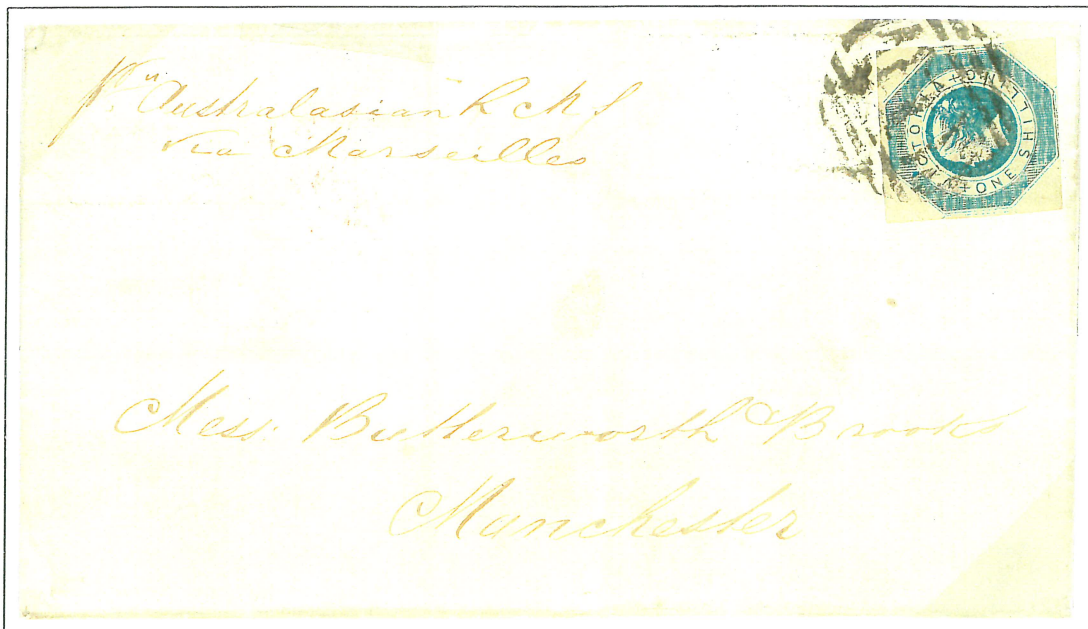 pr "Australasian" R M S
via Marseilles
VICTORIA + ONE SHILLING +
Mess: Butterworth & Brooks
Manchester